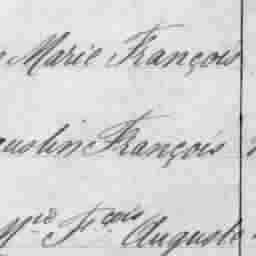 Marie François
gustin François
Mie Fçois Auguste